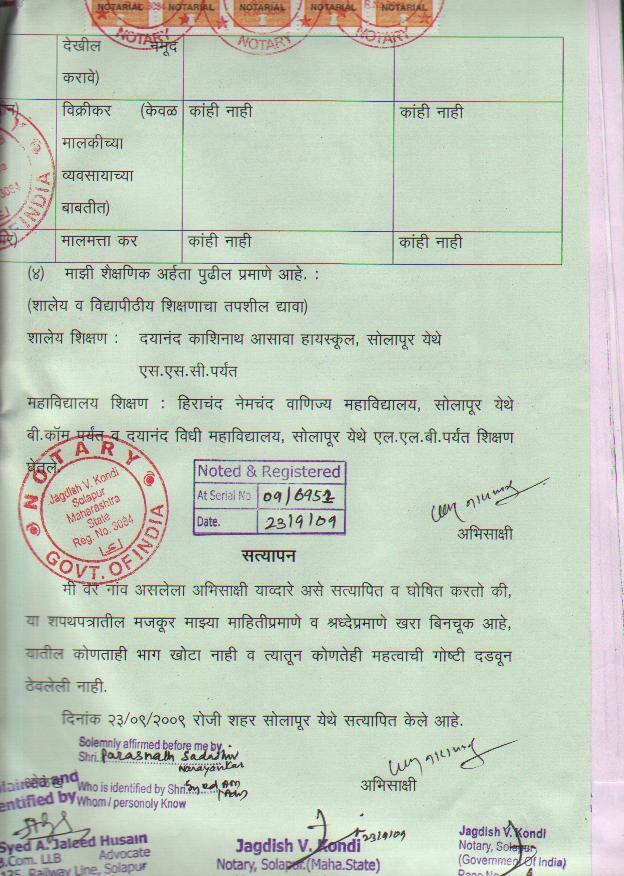 NOTARIAL NOTARIAL NOTARIAL NOTARIAL NOTARIAL
NOTARY NOTARY NOTARY
देखील नमूद
करावे)
विक्रीकर (केवळ कांही नाही कांही नाही
मालकीच्या
व्यवसायाच्या
बाबतीत)
मालमत्ता कर कांही नाही कांही नाही
(४) माझी शैक्षणिक अर्हता पुढील प्रमाणे आहे. :
(शालेय व विद्यापीठीय शिक्षणाचा तपशील द्यावा)
शालेय शिक्षण : दयानंद काशिनाथ आसावा हायस्कूल, सोलापूर येथे
एस.एस.सी.पर्यंत
महाविद्यालय शिक्षण : हिराचंद नेमचंद वाणिज्य महाविद्यालय, सोलापूर येथे
बी.कॉम पर्यंत व दयानंद विधी महाविद्यालय, सोलापूर येथे एल.एल.बी.पर्यंत शिक्षण
घेतले.
NOTARY
Jagdish V. Kondi
Solapur
Maharashtra
State
Reg. No. 3084
GOVT. OF INDIA
Noted & Registered
At Serial No. 09/6952
Date. 23/9/09
अभिसाक्षी
सत्यापन
मी वर नांव असलेला अभिसाक्षी याव्दारे असे सत्यापित व घोषित करतो की,
या शपथपत्रातील मजकूर माझ्या माहितीप्रमाणे व श्रध्देप्रमाणे खरा बिनचूक आहे,
यातील कोणताही भाग खोटा नाही व त्यातून कोणतेही महत्वाची गोष्टी दडवून
ठेवलेली नाही.
दिनांक २३/०९/२००९ रोजी शहर सोलापूर येथे सत्यापित केले आहे.
Solemnly affirmed before me by
Shri. Parasnath Sadashiv
Narayankar
Who is identified by Shri. Syed
Whom I personoly Know
अभिसाक्षी
and
entified by
Syed A. Jaleed Husain
B.Com. LLB Advocate
135, Railway Line, Solapur
23/9/09
Jagdish V. Kondi
Notary, Solapur.(Maha.State)
Jagdish V. Kondi
Notary, Solapur
(Government Of India)